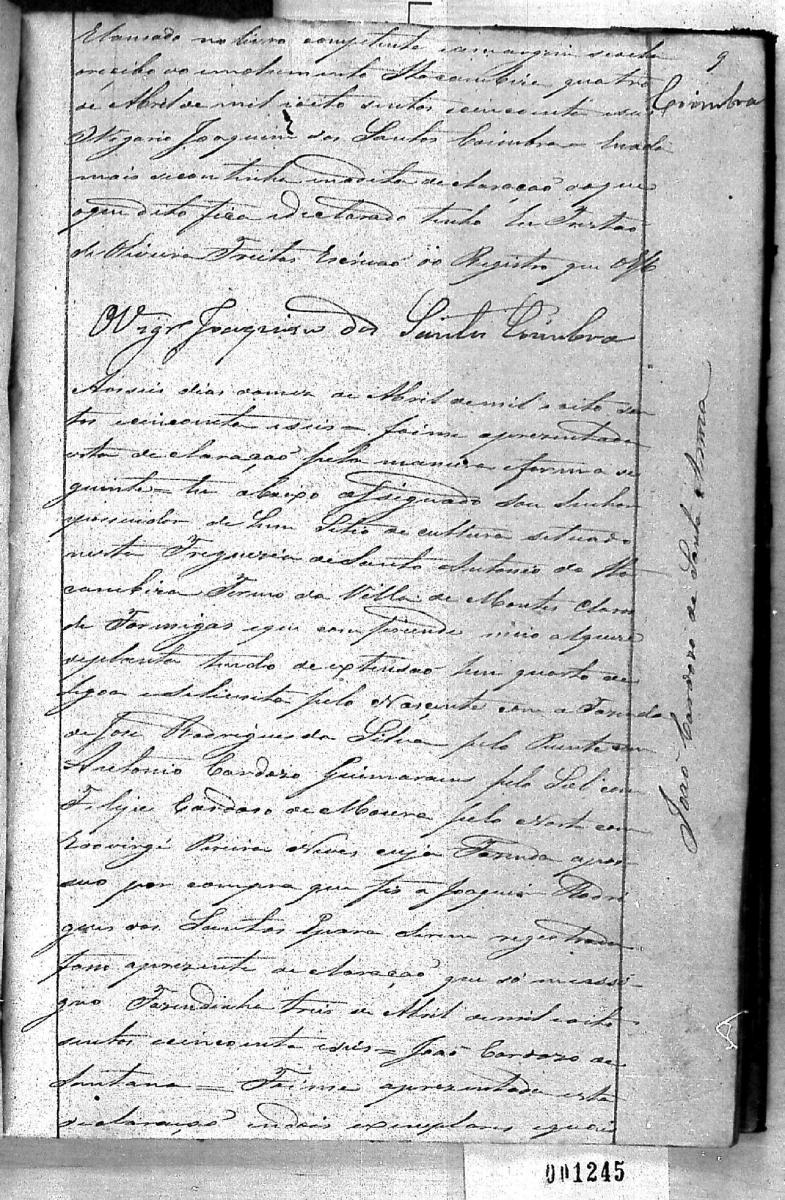 9
Coimbra
Elançada no livro competente e a margem desta
o recibo do emolumento Itacambira quatro
de Abril de mil e oito centos e cincoenta e seis
O Vigario Joaquim dos Santos Coimbra = E nada
mais se continha na dita declaração do que
aqui dito fica e declarado tenho Eu
de Oliveira Freitas Escrivão do Registro que
O Vigr.º Joaquim dos Santos Coimbra
Aos seis dias do mez de Abril de mil e oito cen
tos e cincoenta e seis = foi me aprezentada
esta declaração pela maneira e forma se
guinte = Eu abaixo assignado sou senhor
possuidor de hum Sitio de cultura situado
nesta Freguezia de Santo Antonio da Ita
cambira Termo da Villa de Montes Claros
de Formigas e que comprende meio alqueire
de planta tendo de extensão hum quarto de
legoa e delimita pelo Nascente com a Fazenda
de José Rodrigues da Silva pelo Puente com
Antonio Cardozo Guimaraens pelo Sul com
Felipe Cardoso de Moura pelo Norte com
Pereira Neves cuja Fazenda a pos
suo por compra que fis a Joaquim Rodri
gues dos Santos E para serem registrada
faço aprezente declaração que só me assi
gno Fazendinha tres de Abril de mil e oito
centos e cincoenta e seis = João Cardozo de
Santana = Foi me aprezentada esta
declaração em dois exemplares iguais
João Cardozo de Santa Anna
001245